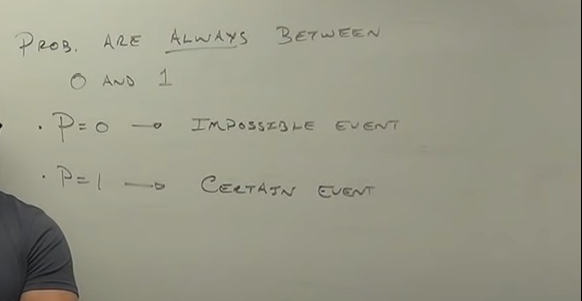 PROB. ARE ALWAYS BETWEEN
0 AND 1
· P=0 → IMPOSSIBLE EVENT
· P=1 → CERTAIN EVENT